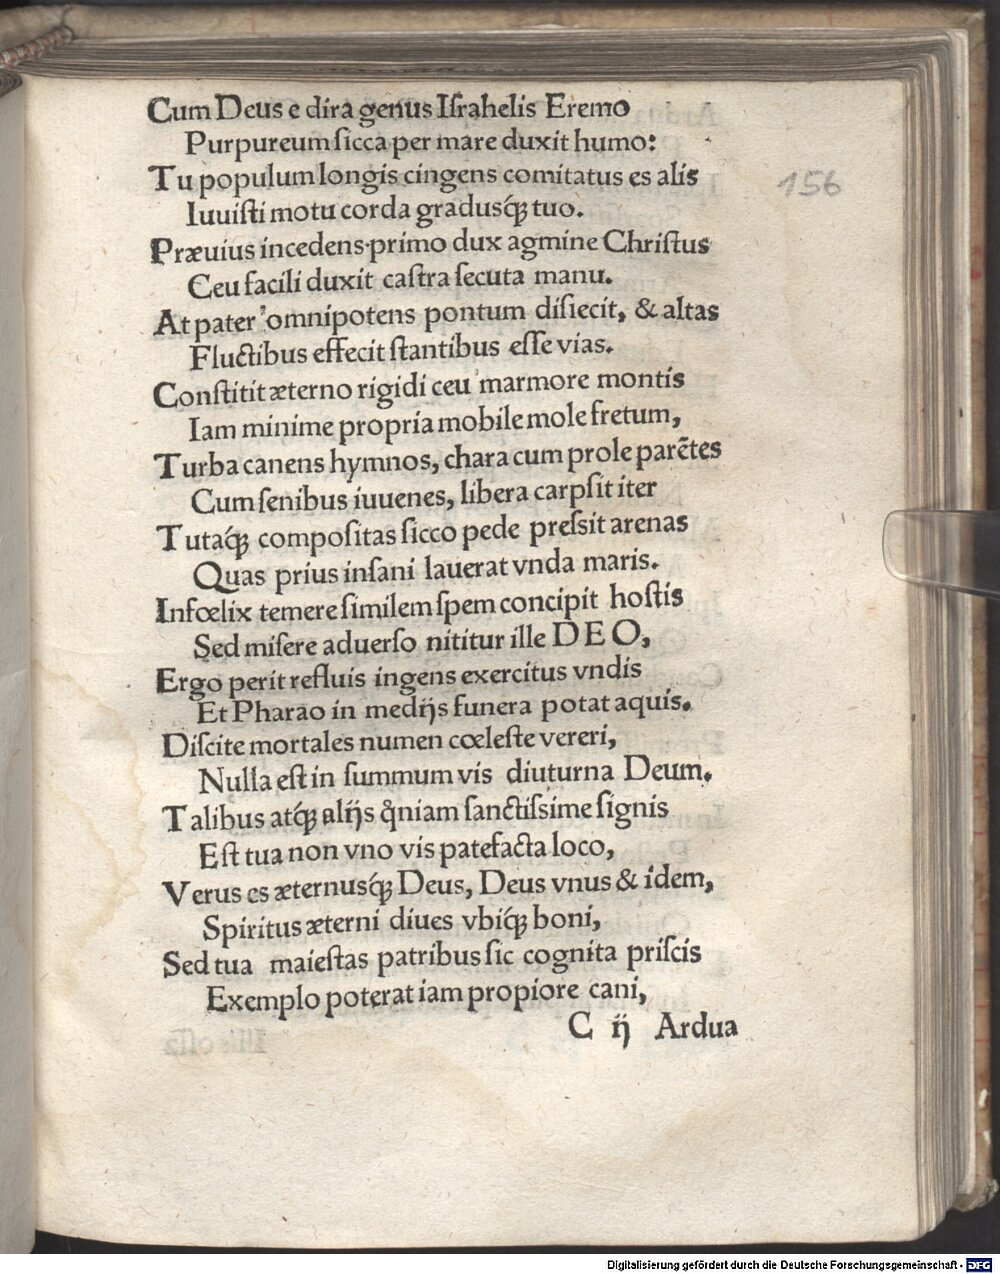 Cum Deus e dira genus Iſrahelis Eremo
Purpureum ſicca per mare duxit humo:
Tu populum longis cingens comitatus es alis
Iuuiſti motu corda graduſq́ꝫ tuo.
Prævius incedens·primo dux agmine Chriſtus
Ceu facili duxit caſtra ſecuta manu.
At pater omnipotens pontum diſiecit, & altas
Fluctibus effecit ſtantibus eſſe vias.
Conſtitit æterno rigidi ceu marmore montis
Iam minime propria mobile mole fretum,
Turba canens hymnos, chara cum prole parẽtes
Cum ſenibus iuuenes, libera carpſit iter
Tutaq́ꝫ compoſitas ſicco pede preſsit arenas
Quas prius inſani lauerat vnda maris.
Infœlix temere ſimilem ſpem concipit hoſtis
Sed miſere aduerſo nititur ille DEO,
Ergo perit refluis ingens exercitus vndis
Et Pharao in medijs funera potat aquis.
Diſcite mortales numen cœleſte vereri,
Nulla eſt in ſummum vis diuturna Deum.
Talibus atq́ꝫ alijs q̊niam ſanctiſsime ſignis
Eſt tua non vno vis patefacta loco,
Verus es æternuſq́ꝫ Deus, Deus vnus & idem,
Spiritus æterni diues vbiq́ꝫ boni,
Sed tua maieſtas patribus ſic cognita priſcis
Exemplo poterat iam propiore cani,
C ij Ardua
156
Digitalisierung gefördert durch die Deutsche Forschungsgemeinschaft - DFG